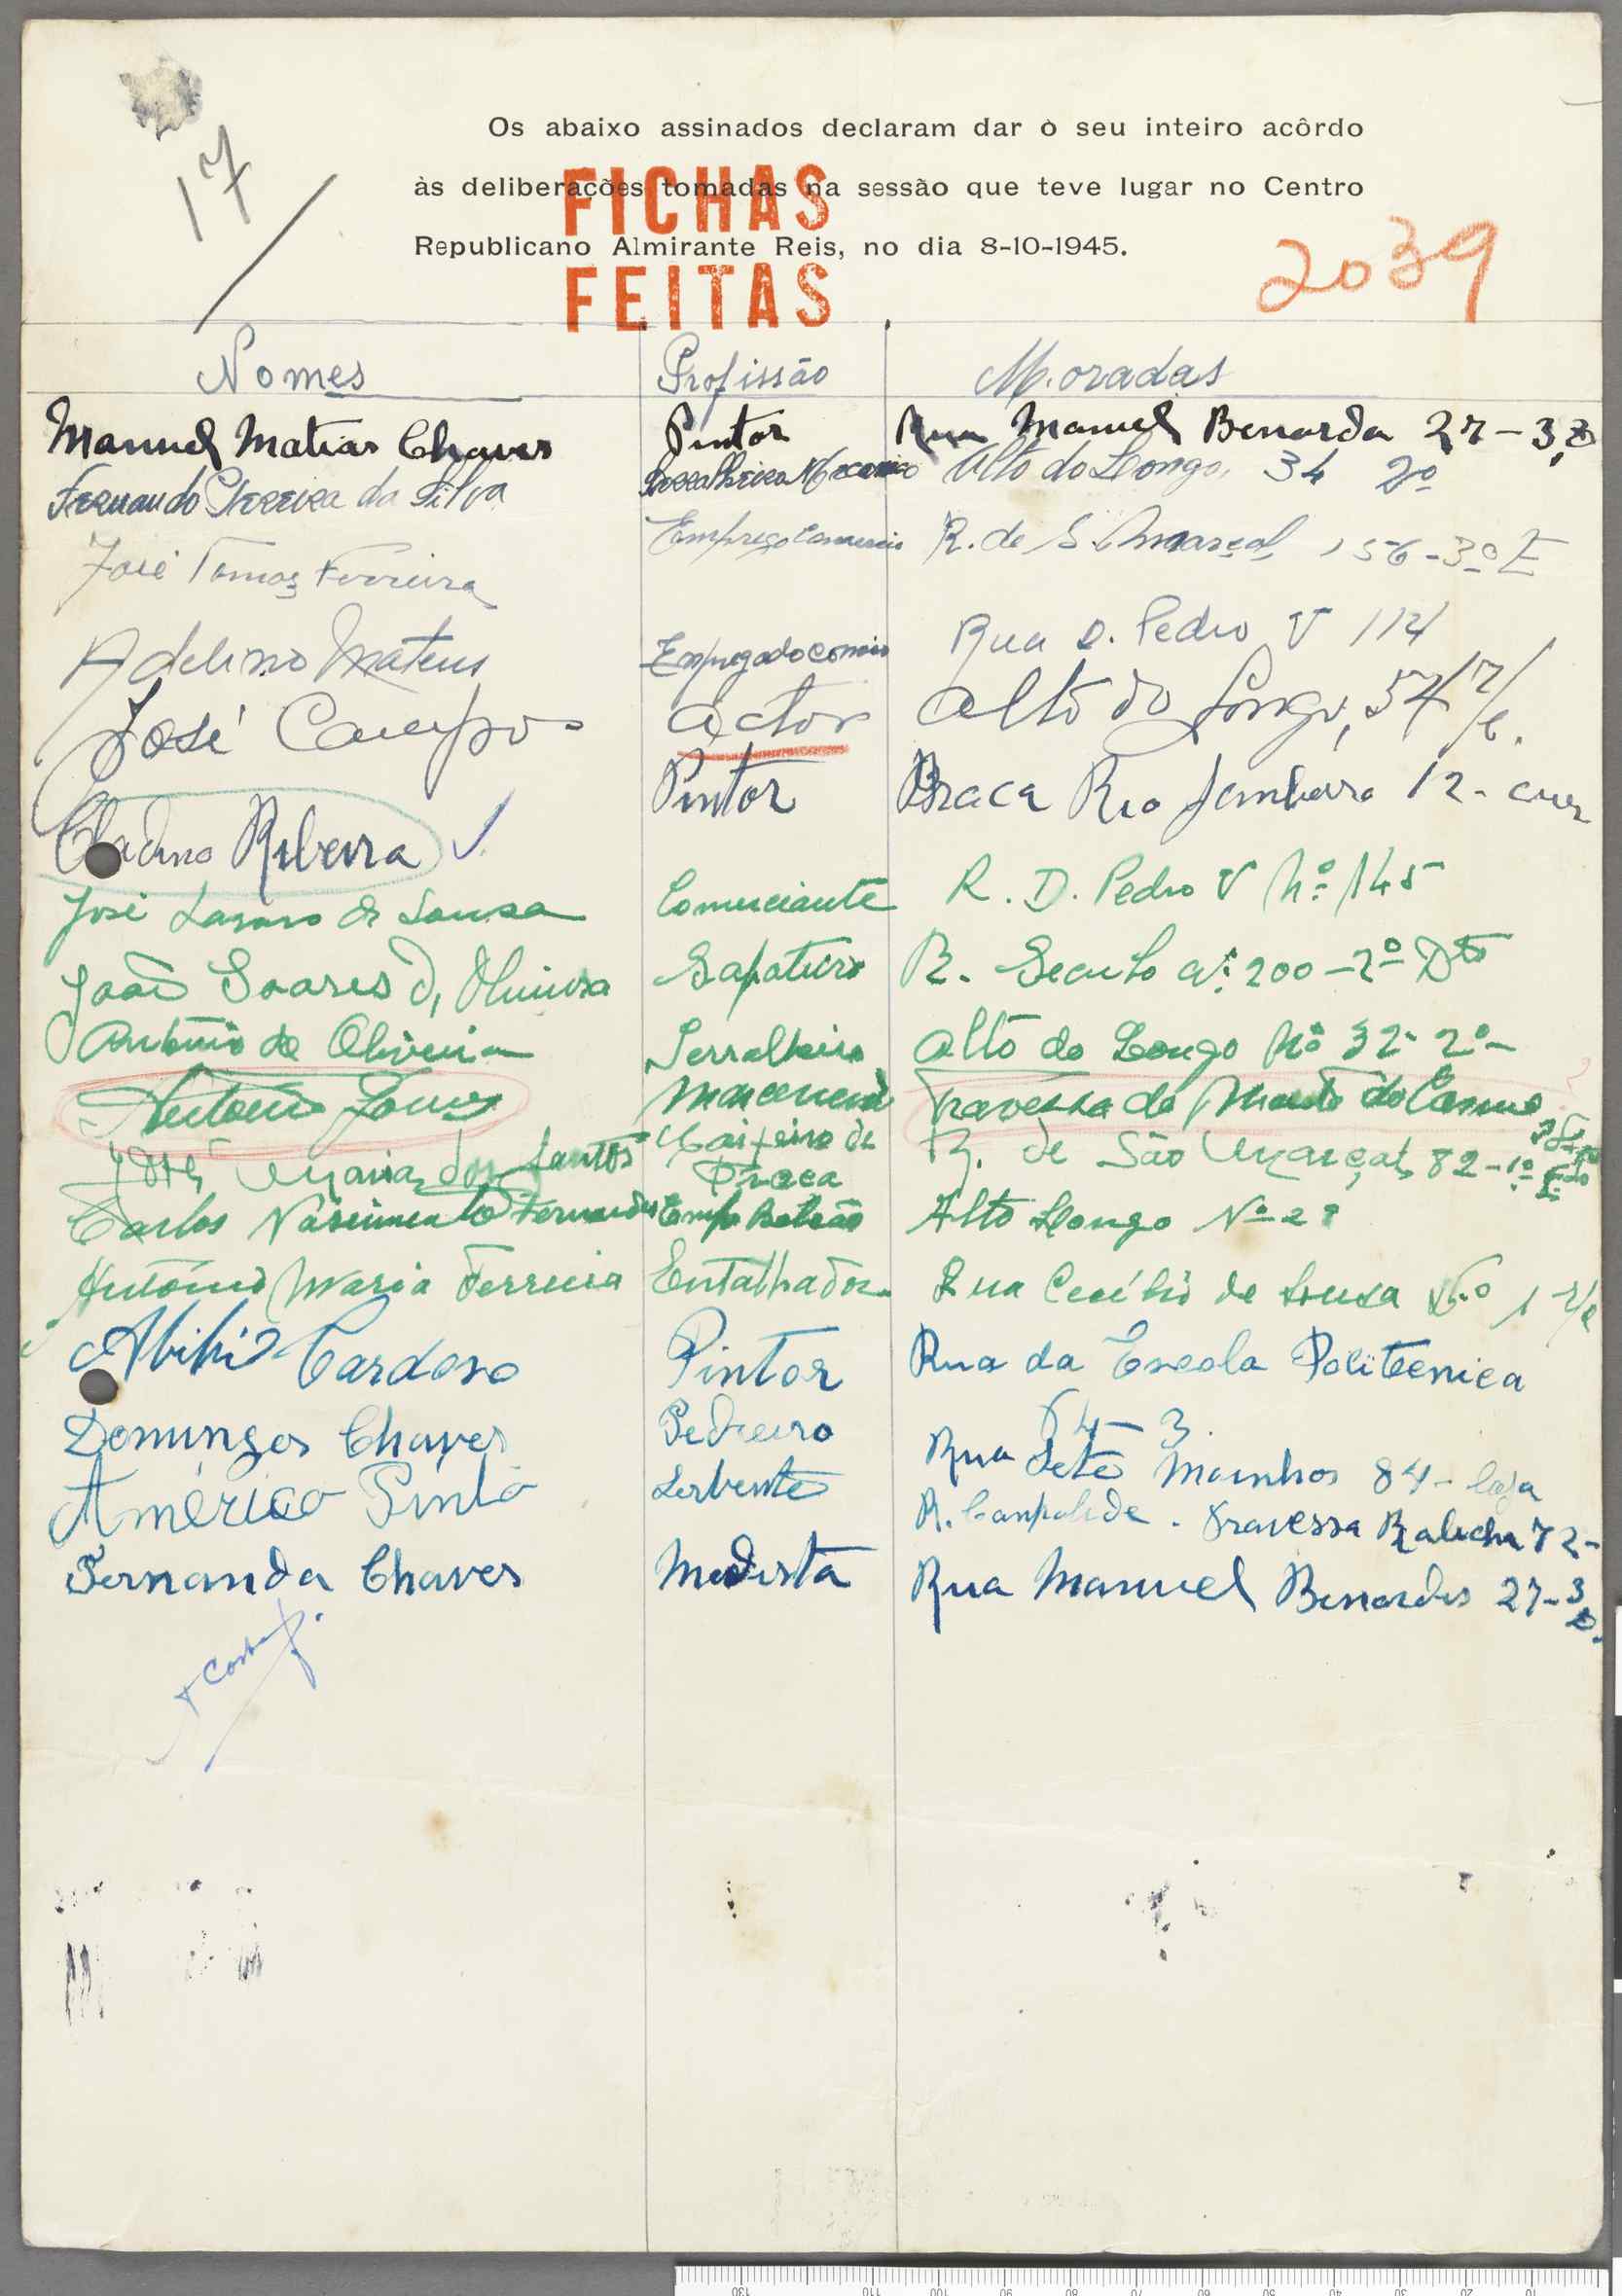 17
Os abaixo assinados declaram dar o seu inteiro acôrdo
às deliberações tomadas na sessão que teve lugar no Centro
Republicano Almirante Reis, no dia 8-10-1945.
FICHAS
FEITAS
2039
Nomes Profissão Moradas
Manuel Matias Chaves Pintor Rua Manuel Benarda 27-3,D
Fernando Pereira da Silva Serralheiro Mecanico Alto do Longo, 34 2º
José Tomaz Ferreira Emprego Comercio R. de S. Marçal, 156-3º E
Adelino Mateus Empregado comercio Rua D. Pedro V 114
José Campos actor Alto do Longo, 54 r/c.
Ribeira Pintor Praca Rio Janheiro 12-
José Lazaro de Sousa Comerciante R. D. Pedro V Nº 145
João Soares d'Oliveira Sapateiro R. Seculo nº 200-2º Dto
António de Oliveira Serralheiro Alto do Longo Nº 32-2º
António Marceneiro Travessa do Monte do Carmo
José Maria dos Santos Caixeiro de Praca R. de São Marçal, 82-1º
Carlos Nascimento Fernandes Emp. Balcão Alto Longo Nº 29
António Maria Ferreira Entalhador Rua Cecílio de Sousa Nº 1 r/c
Abilio Cardoso Pintor Rua da Escola Politecnica
64-3.
Domingos Chaves Pedreiro Rua Sete Moinhos 84-loja
Américo Pinto Servente R. Campolide. Travessa Rabicha 72-
Fernanda Chaves Modista Rua Manuel Benardes 27-3 D.